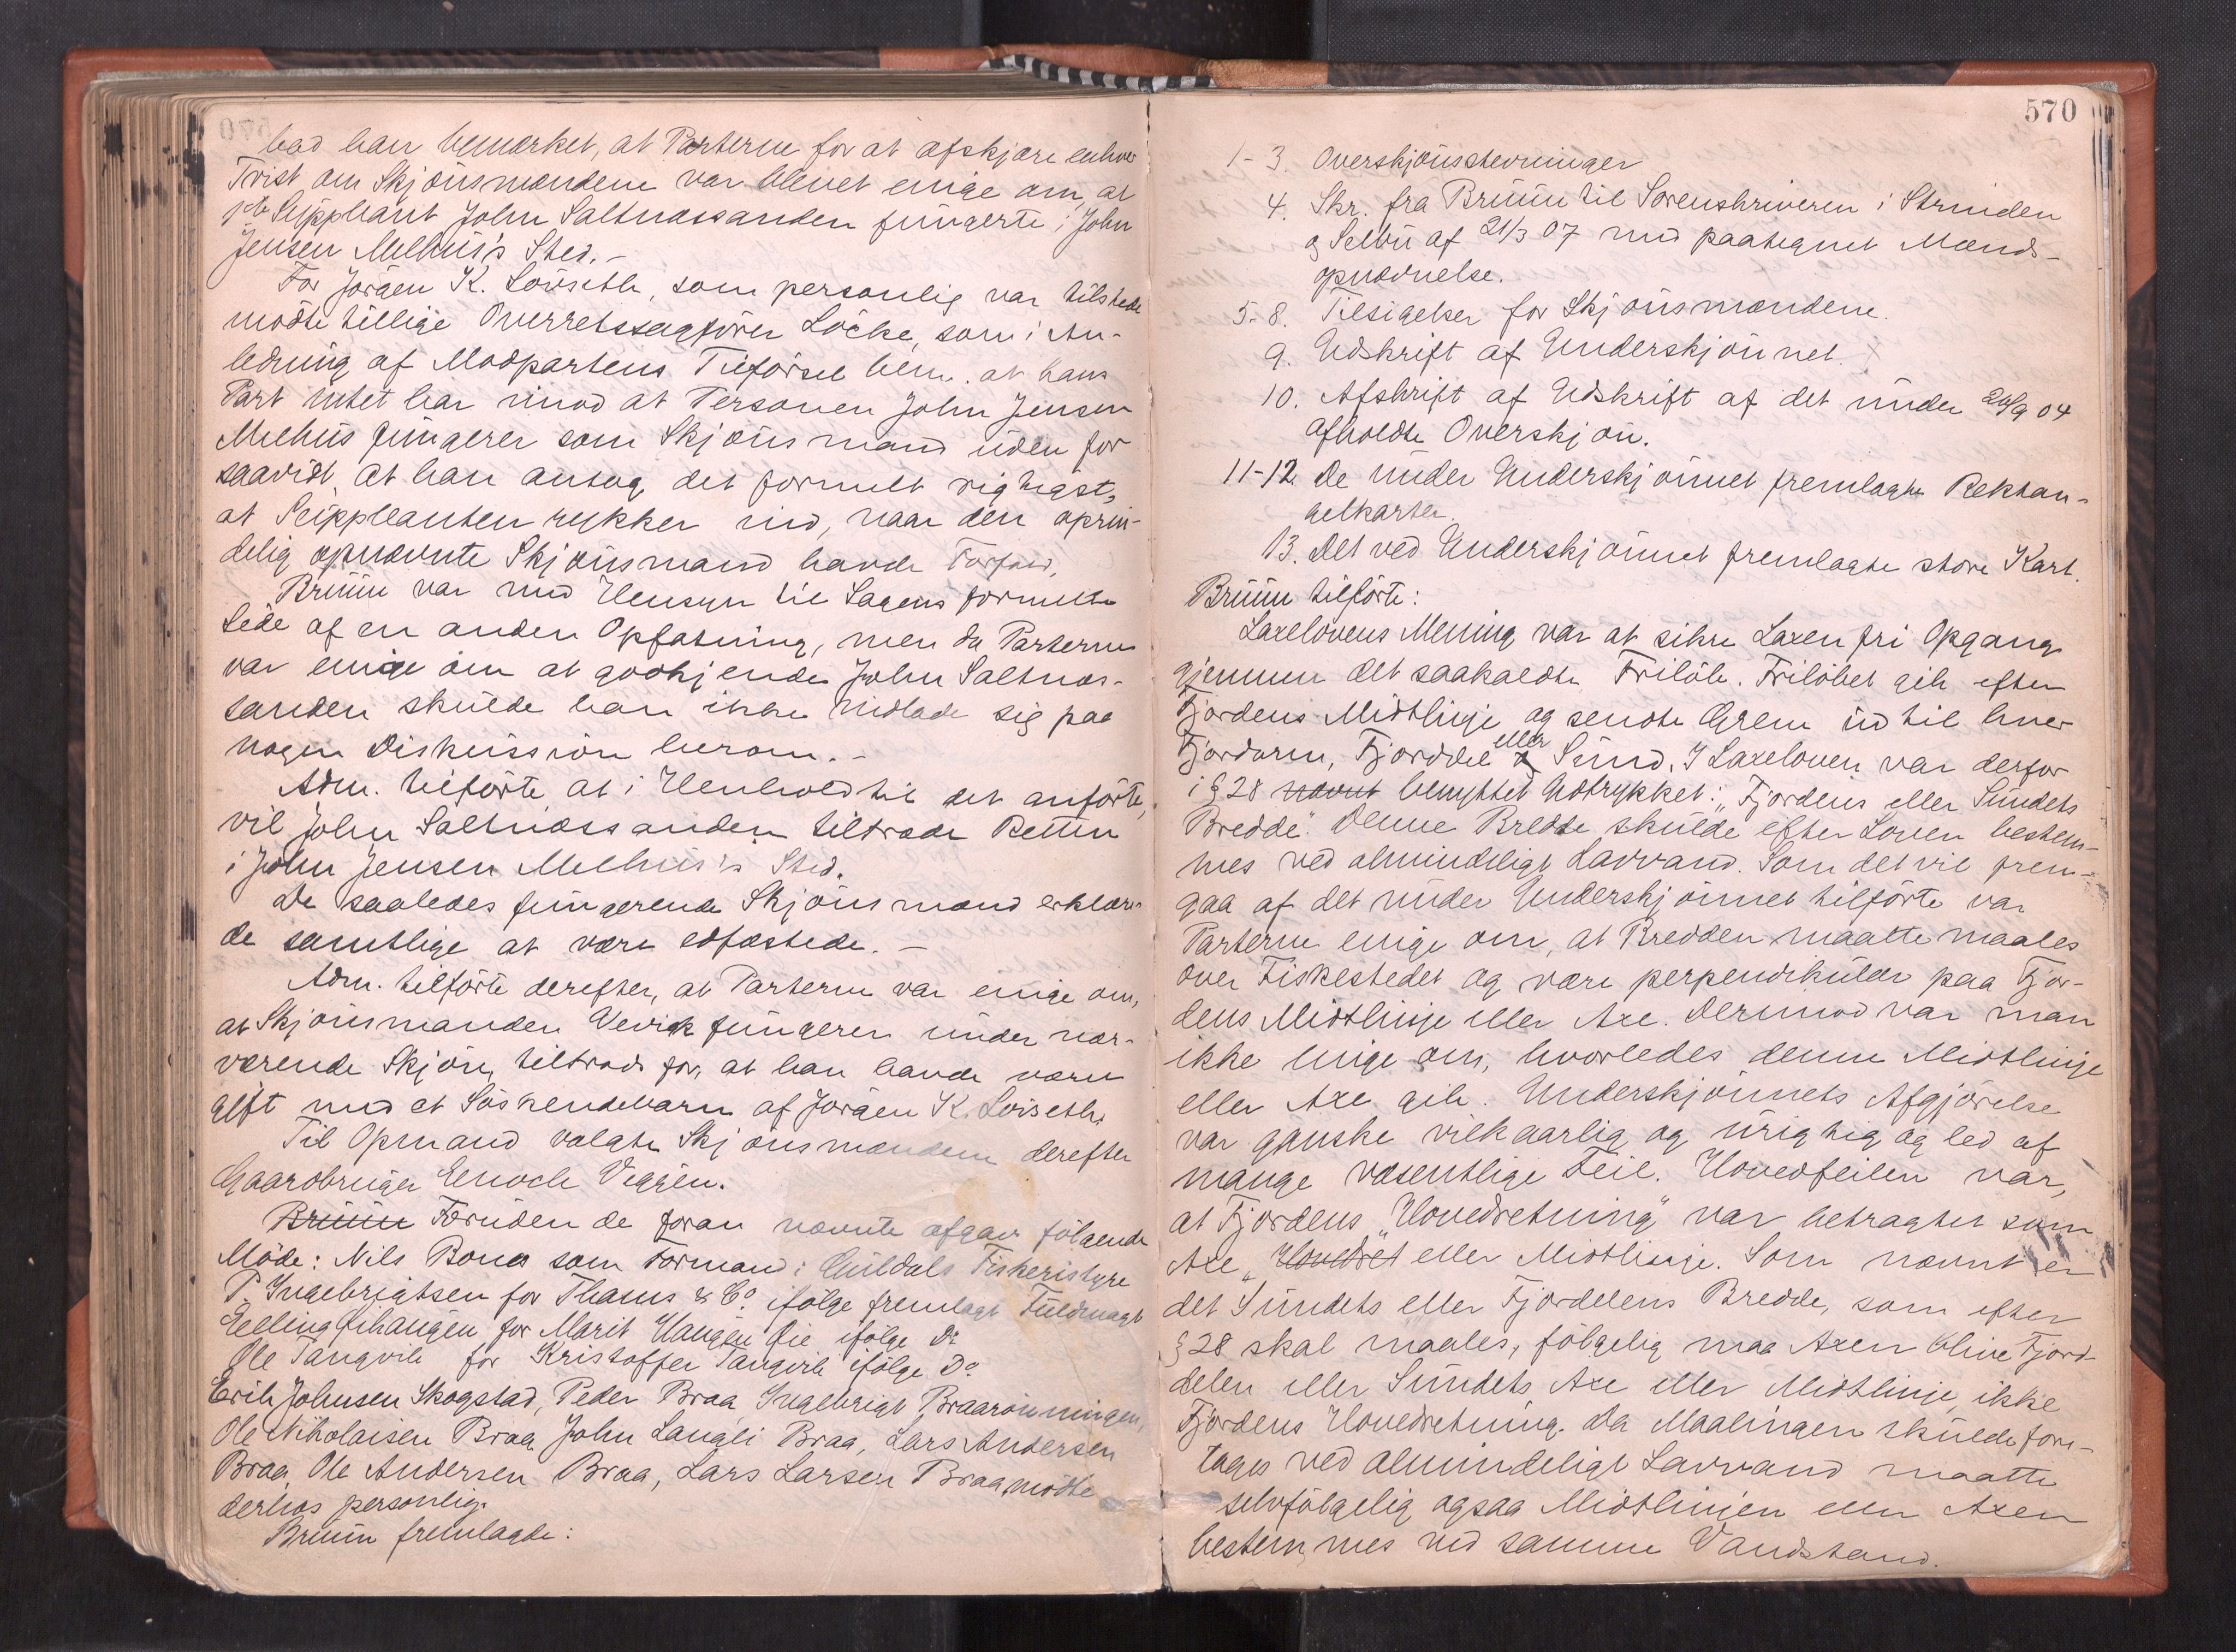 bad han bemærket, at Parterne for at afskjære enhver
Tvist om Skjønsmændene var blevet enige om, at
1ste Suppleant John Saltnæssanden fungerte i John
Jensen Melhus's Sted. -
For Jørgen K. Løvseth, som personlig var tilstede
mødte tillige Overretssagfører Löcke, som i An-
ledning af Modpartens Tilførsel bem. at hans
Part intet har imod at Personen John Jensen
Melhus fungerer som Skjønsmand uden for
saavidt, at han antog det formelt rigtigst,
at Suppleanten rykker ind, naar den oprin-
delig opnævnte Skjønsmand havde Forfald.
Bruun var med Hensyn til Sagens formelle
Side af en anden Opfatning, men da Parterne
var enige om at godkjende John Saltnæs-
sanden skulde han ikke indlade sig paa
nogen Diskussion herom. -
Adm. tilførte, at i Henhold til det anførte,
vil John Saltnæssanden tiltræde Retten
i John Jensen Melhus's Sted.
De saaledes fungerende Skjønsmænd erklære-
de samtlige at være edfæstede. -
Adm. tilførte derefter, at Parterne var enige om,
at Skjønsmanden Uevik fungerer under nær-
værende Skjøn, tiltrods for, at han havde været
gift med et Søskendebarn af Jørgen K. Løvseth.
Til Opmand valgte Skjønsmændene derefter
Gaardbruger Enoch Viggen.
Bruun Foruden de foran nævnte afgav følgende
Møde: Nils Bones som Formand i Guldals Fiskeristyre
P. Ingebrigtsen for Thams & Co. ifølge fremlagt Fuldmagt
for Marit Haugen Øie ifølge Do
Ole Tangvik for Kristoffer Tangvik ifølge Do
Erik Johnsen Skogstad, Peder Braa, Ingebrigt Braarønningen,
Ole Nikolaisen Braa, John Langli Braa, Lars Andersen
Braa, Ole Andersen Braa, Lars Larsen Braa, mødte
derhos personlig.
Bruun fremlagde:
570
1-3. Overskjønsstevninger
4. Skr. fra Bruun til Sorenskriveren i Strinden
og Selbu af 21/3 07 med paategnet Mænds-
opnævnelse.
5-8. Tilsigelser for Skjønsmændene.
9. Udskrift af Underskjønnet.
10. Afskrift af Udskrift af det under 24/9 04
afholdte Overskjøn.
11-12. De under Underskjønnet fremlagte Rektan-
gelkarter.
13. Det ved Underskjønnet fremlagte store Kart.
Bruun tilførte:
Laxelovens Mening var at sikre Laxen fri Opgang
gjennem det saakaldte Friløb. Friløbet gik efter
Fjordens Midtlinje og sendte Grene ud til hver
Fjordarm, Fjorddel eller Sund. I Laxeloven var derfor
i § 28 nævnt benyttet Udtrykket: "Fjordens eller Sundets
Bredde". Denne Bredde skulde efter Loven bestem-
mes ved almindeligt Lavvand. Som det vil frem-
gaa af det under Underskjønnet tilførte var
Parterne enige om, at Bredden maatte maales
over Fiskestedet og være perpendikulær paa Fjor-
dens Midtlinje eller Axe. Derimod var man
ikke enige om, hvorledes denne Midtlinje
eller Axe gik. Underskjønnets Afgjørelse
var ganske vilkaarlig og urigtig og led af
mange væsentlige Feil. Hovedfeilen var,
at Fjordens "Hovedretning" var betragtet som
Axe "Hovedret eller Midtlinje. Som nævnt er
det Sundets eller Fjorddelens Bredde, som efter
§ 28 skal maales, følgelig maa Axen blive Fjord-
delen eller Sundets Axe eller Midtlinje, ikke
Fjordens Hovedretning. Da Maalingen skulde fore-
tages ved almindeligt Lavvand maatte
selvfølgelig ogsaa Midtlinjen eller Axen
bestemmes ved samme Vandstand.